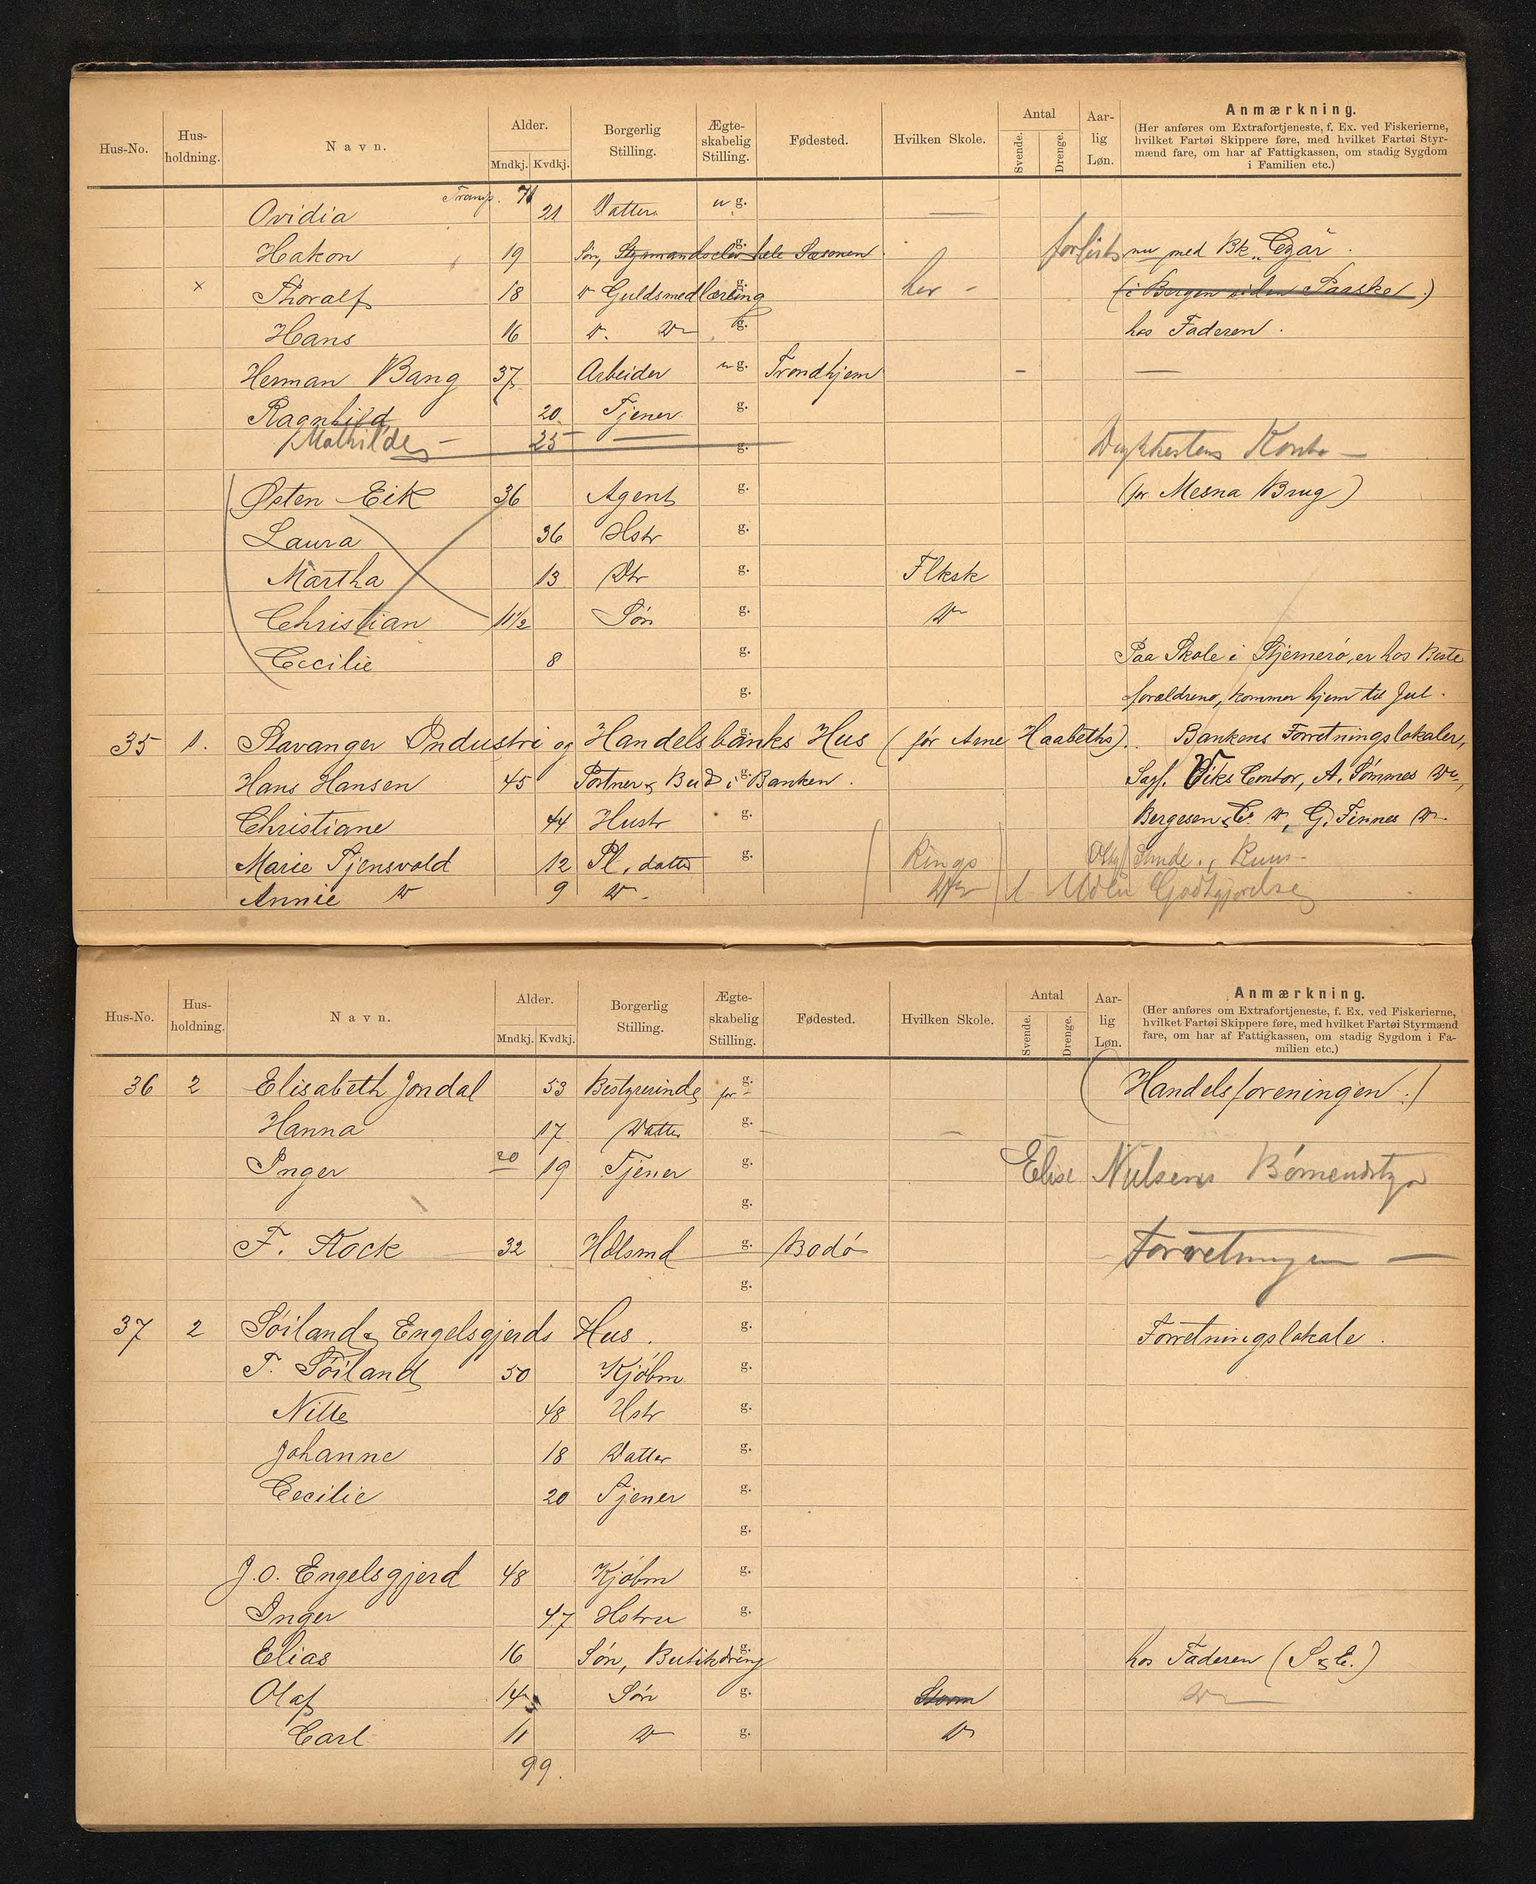 Hus-No. Hus-holdning. Navn. Alder. Mndkj. Kvdkj. Borgerlig Stilling. Ægte-skabelig Stilling. Fødested. Hvilken Skole. Antal Svende. Drenge. Aar-lig Løn. Anmærkning.
(Her anføres om Extrafortjeneste, f. Ex. ved Fiskerierne, hvilket Fartøi Skippere føre, med hvilket Fartøi Styrmænd fare, om har af Fattigkassen, om stadig Sygdom i Familien etc.)
Transp. 71
Ovidia 21 Datter u g.
Hakon 19 Søn, Styrmandselev hele Sæsonen g. forlist nu med Bk „Czar.
× Thoralf 18 " Guldsmedlærling g. her - (i Bergen siden Paaske.)
Hans 16 " " g. hos Faderen.
Herman Bang 37 Arbeider u g. Trondhjem - —
Ragnhild 20 Tjener g.
Mathilde — 25 — g.
Østen Eik 36 Agent g. (for Mesna Brug)
Laura 36 Hstr g.
Martha 13 Dtr g. Flksk
Christian 11½ Søn g. "
Cecilie 8 g. Paa Skole i Stjernerø, er hos Beste
g. forældrene, kommer hjem til Jul.
35 1. Stavanger Industri og Handelsbanks Hus (før Arne Haabeths). g. Bankens Forretningslokaler,
Hans Hansen 45 Portner & Bud i Banken. g. Sagf. Eiks Contor, A. Sømmes do,
Christiane 44 Hustr g. Bergesen & C. do, G. Finnes do
Marie Tjensvold 12 Pl. datter g. Kings
Annie " 9 " " Uden Godtgjørelse
Hus-No. Hus-holdning. Navn. Alder. Mndkj. Kvdkj. Borgerlig Stilling. Ægte-skabelig Stilling. Fødested. Hvilken Skole. Antal Svende. Drenge. Aar-lig Løn. Anmærkning.
(Her anføres om Extrafortjeneste, f. Ex. ved Fiskerierne, hvilket Fartøi Skippere føre, med hvilket Fartøi Styrmænd fare, om har af Fattigkassen, om stadig Sygdom i Familien etc.)
36 2 Elisabeth Jondal 53 Bestyrerinde for - g. (Handelsforeningen.)
Hanna 17 Datter g. — —
Inger 20 19 Tjener g. Elise Nilsens
g.
F. Kock 32 Hdlsmd g. Bodø Forretningen —
g.
37 2 Søiland & Engelsgjerds Hus. g. Forretningslokale.
T. Søiland 50 Kjøbm g.
Nille 48 Hstr g.
Johanne 18 Datter g.
Cecilie 20 Tjener g.
g.
J. O. Engelsgjerd 48 Kjøbm g.
Inger 47 Hstru g.
Elias 16 Søn, Butikdreng g. hos Faderen (S & E.)
Olaf 14 Søn g. Storm "
Carl 11 " g. "
99.